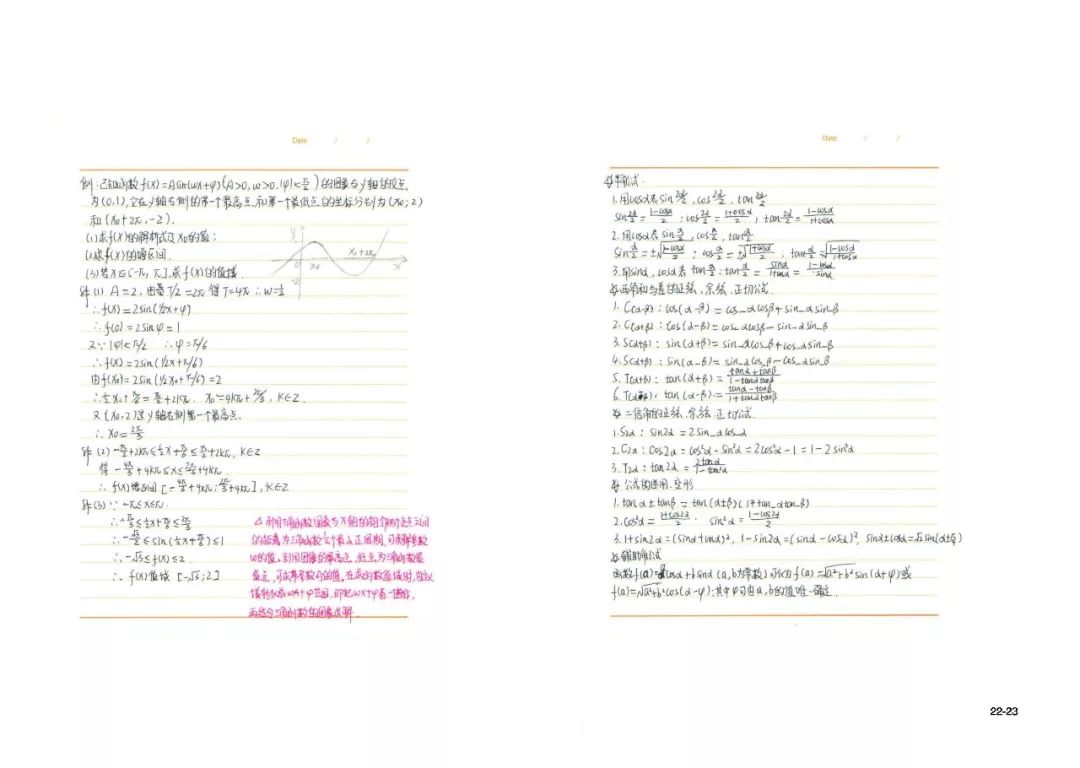 Date / /
例:已知函数f(x)=Asin(ωx+φ)(A>0,ω>0.|φ|<π/2)的图象与y轴的交点
为(0,1),它在y轴右侧的第一个最高点和第一个最低点的坐标分别为(x₀;2)
和(x₀+2π,-2).
(1)求f(x)的解析式及x₀的值;
(2)求f(x)的增区间.
(3)若x∈[-π,π],求f(x)的值域.
y 2 0 x₀ x₀+2π x -2
解(1) A=2, T/2=2π 得T=4π ∴ω=½
∴f(x)=2sin(½x+φ)
∴f(0)=2sinφ=1
又∵|φ|<π/2 ∴φ=π/6
∴f(x)=2sin(½x+π/6)
由f(x₀)=2sin(½x₀+π/6)=2
∴½x₀+π/6=π/2+2kπ, x₀=4kπ+2π/3, k∈Z
又(x₀,2)是y轴右侧第一个最高点.
∴x₀=2π/3
解(2) -π/2+2kπ≤½x+π/6≤π/2+2kπ, k∈Z
得 -4π/3+4kπ≤x≤2π/3+4kπ.
∴f(x)增区间[-4π/3+4kπ; 2π/3+4kπ], k∈Z
解(3)∵-π≤x≤π.
∴-π/3≤½x+π/6≤2π/3
∴-√3/2≤sin(½x+π/6)≤1
∴-√3≤f(x)≤2
∴f(x)值域[-√3;2]
△利用三角函数图象与x轴的相邻两交点之间
的距离为三角函数½个最小正周期,可求解参数
ω的值.利用图像的最高点、低点为三角函数最
值点,可求参数A的值,在求函数值域时,应议
该转化成ωx+φ范围,即把ωx+φ看一整体,
再结合三角函数的图像求解.
Date / /
半角公式.
1.用cosα表sin²α/2,cos²α/2,tan²α/2
sin²α/2=(1-cosα)/2;cos²α/2=(1+cosα)/2;tan²α/2=(1-cosα)/(1+cosα)
2.用cosα表sinα/2,cosα/2,tanα/2
sinα/2=±√((1-cosα)/2);cosα/2=±√((1+cosα)/2);tanα/2=√((1-cosα)/(1+cosα))
3.用sinα,cosα表tanα/2:tanα/2=sinα/(1+cosα)=(1-cosα)/sinα
两角和与差的正弦、余弦、正切公式.
1. C(α-β):cos(α-β)=cosαcosβ+sinαsinβ
2. C(α+β):cos(α-β)=cosαcosβ-sinαsinβ
3. S(α+β):sin(α+β)=sinαcosβ+cosαsinβ
4. S(α+β):sin(α-β)=sinαcosβ-cosαsinβ
5. T(α+β):tan(α+β)=(tanα+tanβ)/(1-tanαtanβ)
6. T(α-β):tan(α-β)=(tanα-tanβ)/(1+tanαtanβ)
二倍角的正弦、余弦、正切公式.
1. S2α:sin2α=2sinαcosα
2. C2α:cos2α=cos²α-sin²α=2cos²α-1=1-2sin²α
3. T2α:tan2α=2tanα/(1-tan²α)
公式的逆用.变形
1. tanα±tanβ=tan(α±β)(1∓tanαtanβ)
2. cos²α=(1+cos2α)/2. sin²α=(1-cos2α)/2
3. 1+sin2α=(sinα+cosα)², 1-sin2α=(sinα-cosα)², sinα±cosα=√2sin(α±π/4)
辅助角公式
函数f(α)=acosα+bsinα(a,b为常数)可化为f(α)=√(a²+b²)sin(α+φ)或
f(α)=√(a²+b²)cos(α-φ);其中φ可由a,b的值唯一确定.
22-23